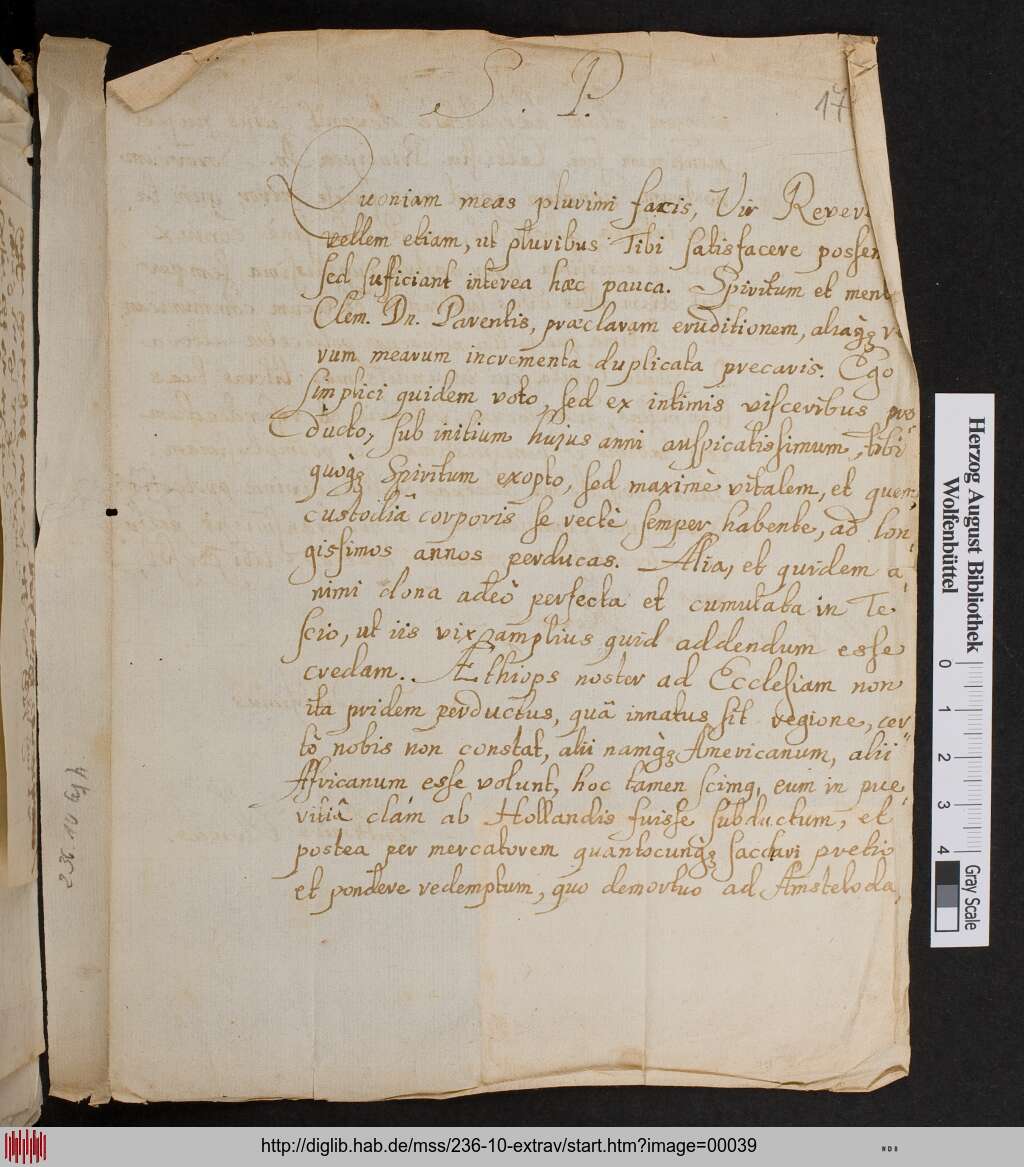 S. P.
17
Quoniam meas plurimi facis, Vir Rever
vellem etiam, ut pluribus Tibi satisfacere possem
sed sufficiant interea hæc pauca. Spiritum et ment
Clem. Dn. Parentis, præclaram eruditionem, aliaq̀ꝫ v
rum mearum incrementa duplicata precaris. Ego
simplici quidem voto, sed ex intimis visceribus pro
ducto, sub initium hujus anni auspicatissimum, tibi
quoq̀ꝫ Spiritum exopto, sed maximè vitalem, et quem
custodiâ corporis se rectè semper habente, ad lon-
gissimos annos perducas. Alia, et quidem a-
nimi dona adeò perfecta et cumulata in Te
scio, ut iis vix amplius quid addendum esse
credam. Æthiops noster ad Ecclesiam non
ita pridem perductus, quâ innatus sit regione, cer-
tò nobis non constat, alii namq̀ꝫ Americanum, alii
Affricanum esse volunt, hoc tamen scimq, eum in pue-
ritiâ clám ab Hollandis fuisse subductum, et
postea per mercatorem quantocunq̀ꝫ sacchari pretio
et pondere redemptum, quo demortuo ad Amsteloda
Herzog August Bibliothek
Wolfenbüttel
0 1 2 3 4
Gray Scale
http://diglib.hab.de/mss/236-10-extrav/start.htm?image=00039